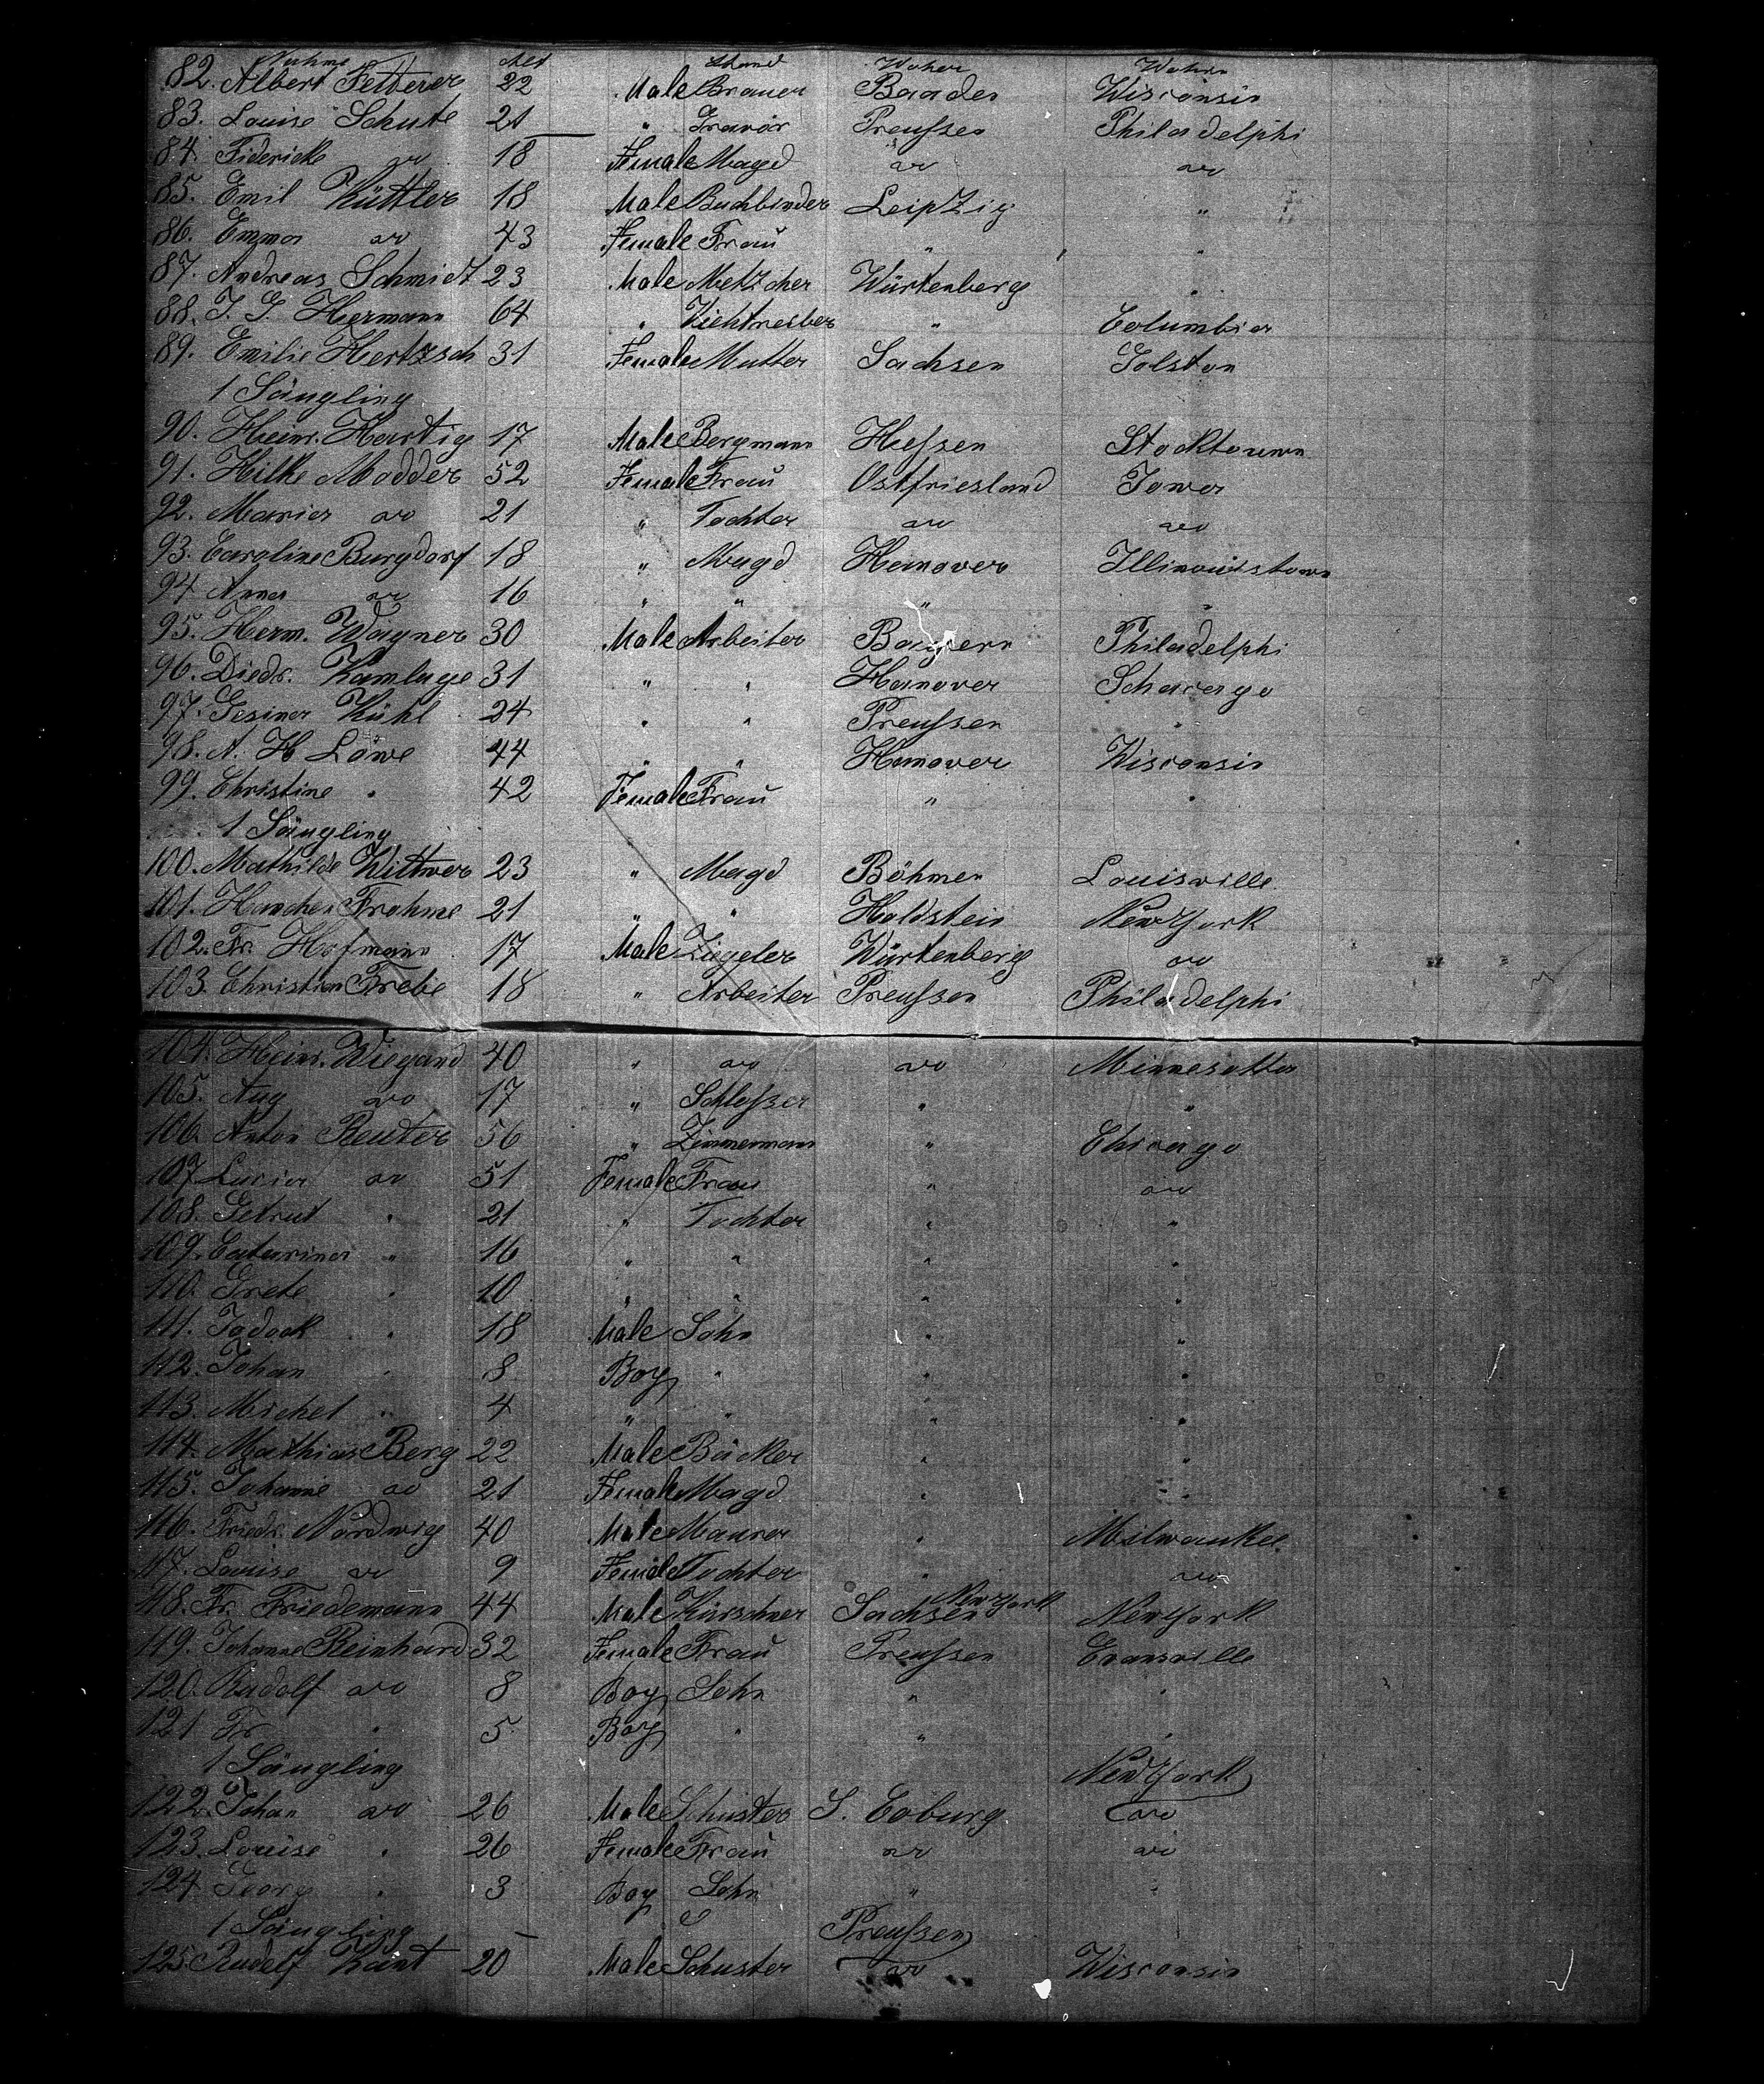 Nahme Alt Stand Woher Wohin
82. Albert Fetterer 22 Male Brauer Baaden Wisconsin
83. Louise Schute 21 " Gravör Preußen Philadelphi
84. Fidericke do 18 Female Magd do do
85. Emil Küttler 18 Male Buchbinder Leipzig "
86. Emma do 43 Female Frau " "
87. Andreas Schmidt 23 Male Metzcher Würtenberg "
88. J. G. Hermann 64 " Viehtreiber " Columbia
89. Emilie Hertzsch 31 Female Mutter Sachsen Golston
1 Säugling
90. Heinr. Hartig 17 Male Bergmann Heßen Stocktouwn
91. Hilke Modder 52 Female Frau Ostfriesland Jowa
92. Maria do 21 " Tochter do do
93. Caroline Burgdorf 18 " Magd Hanover Illinouistown
94 Anna do 16 " " " "
95. Herm. Wagner 30 Male Arbeiter Bayern Philadelphi
96. Diedr. Kamlage 31 " " Hanover Schacago
97. Gesina Kühl 24 " " Preußen "
98. A. H Löwe 44 " " Hanover Wisconsin
99. Christine " 42 Female Frau " "
1 Säugling
100. Mathilde Wittwer 23 " Magd Böhmen Louisville
101. Hanchen Frahme 21 " " Holdstein New York
102. Fr. Hofmann 17 Male Ziegeler Würtenberg do
103. Christian Frebe 18 " Arbeiter Preußen Philadelphi
104. Heinr. Wiegand 40 " do do Minnesotta
105. Aug do 17 " Schloßer " "
106. Anton Reuter 56 " Zimmermann " Chicago
107 Lucia do 51 Female Frau " do
108. Getrut " 21 " Tochter " "
109. Catarina " 16 " " " "
110. Grete " 10 " " " "
111. Jodock " 18 Male Sohn " "
112. Johan " 8 Boy " " "
113. Michel " 4 " " " "
114. Mathias Berg 22 Male Bäcker " "
115. Johanne do 21 Female Magd " "
116. Friedr. Nordwig 40 Male Maurer " Milwaukee
117. Louise do 9 Female Tochter " do
118. Fr. Friedemann 44 Male Kürschner Sachsen New York New York
119. Johanne Reinhard 32 Female Frau Preußen Evansville
120. Rudolf do 8 Boy Sohn " "
121 Fr " 5 Boy " " "
1 Säugling New York
122. Johan do 26 Male Schuster S. Coburg do
123. Louise " 26 Female Frau do do
124 Georg " 3 Boy Sohn " "
1 Säugling Preußen
125. Rudolf Kant 20 Male Schuster do Wisconsin